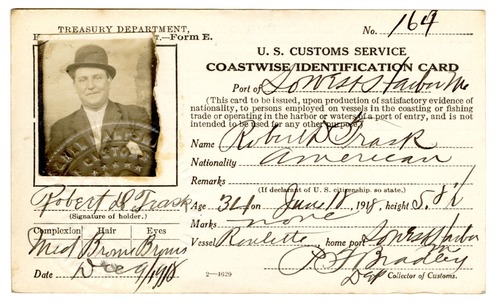 TREASURY DEPARTMENT,
—Form E.
No. 164
U. S. CUSTOMS SERVICE
COASTWISE IDENTIFICATION CARD
Port of So West Harbor Me
(This card to be issued, upon production of satisfactory evidence of
nationality, to persons employed on vessels in the coasting or fishing
trade or operating in the harbor or waters of a port of entry, and is not
intended to be used for any other purpose.)
Name Robert D Trask
Nationality American
Remarks
(If declarant of U. S. citizenship, so state.)
Robert D Trask
(Signature of holder.)
Age 34 on June 18, 1918, height 5. 8½
Marks none
Complexion Hair Eyes
Med Brown Brown
Vessel Roulette, home port So West Harbor
Date Dec 9/1918
2—4629
Bradley
Dep Collector of Customs.